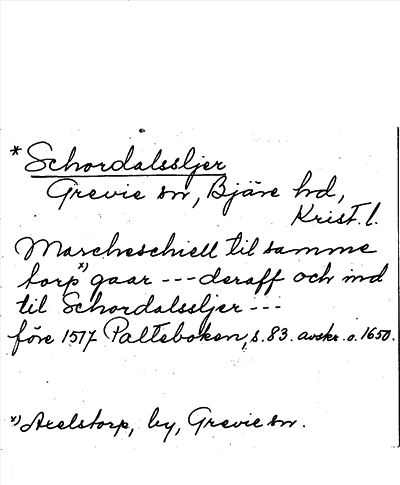 * Schordalssljer
Grevie sn, Bjäre hd,
Krist. l.
Marcheschiell til samme
torp x) gaar --- deraff och ind
til Schordalssljer ---
före 1517 Palteboken, s. 83. avskr. o. 1650.
x) Axelstorp, by, Grevie sn.